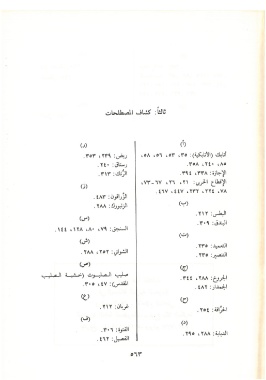 ثالثاً: كشاف المصطلحات
(أ)
أتابك (الأتابكية): ٣٥، ٥٣، ٥٦، ٥٨،
٨٥، ٢٤٠، ٣٥٨.
الإجازة: ٣٣٨، ٣٩٤.
الإقطاع الحربي: ٢١، ٢٦، ٦٧–٧٣،
٧٨، ٢٢٤، ٢٣٢، ٤٤٧، ٤٦٧.
(ب)
البطس: ٢١٢.
البندق: ٣٠٩.
(ت)
التعميد: ٢٣٥.
التنصير: ٢٣٥.
(ج)
الجروخ: ٢٨٨، ٣٤٤.
الجمدار: ٤٨٢.
(ح)
الحراقة: ٢٥٤.
(د)
الدبابة: ٢٨٨، ٢٩٥.
(ر)
ربض: ٢٣٩، ٣٥٣.
رستاق: ٢٤٠.
الرنك: ٣١٣.
(ز)
الزراقون: ٤٨٣.
الزنبورك: ٢٨٨.
(س)
السنجق: ٧٩، ٨٠، ١٢٨، ١٤٤.
(ش)
الشواني: ٢٥٢، ٢٨٨.
(ص)
صليب الصلبوت (خشبة الصليب
المقدس): ٤٧، ٣٠٥.
(غ)
غربان: ٢١٢.
(ف)
الفتوة: ٣٠٦.
الفصيل: ٤٦٢.
٥٦٣